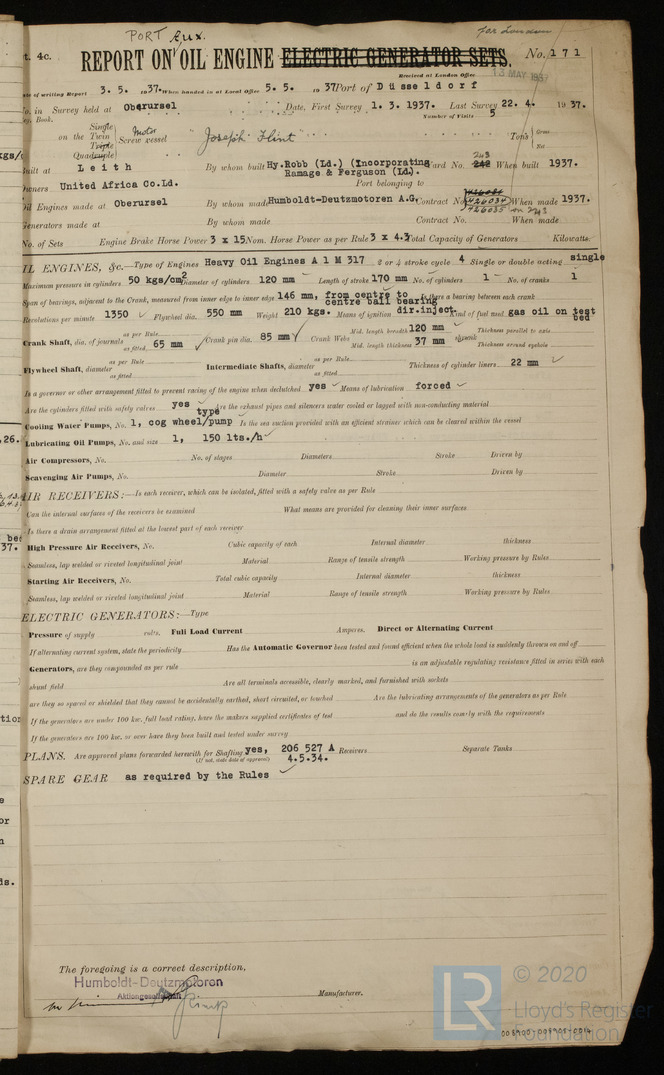 PORT Aux. for London
t. 4c. REPORT ON OIL ENGINE ELECTRIC GENERATOR SETS. No. 171
Received at London Office 13 MAY 1937
Date of writing Report 3. 5. 1937. When handed in at Local Office 5. 5. 1937 Port of Düsseldorf
No. in Survey held at Oberursel Date, First Survey 1. 3. 1937. Last Survey 22. 4. 1937.
Reg. Book. Number of Visits 5
Single
on the Twin Motor
Triple Screw vessel "Joseph Flint" Tons Gross
Quadruple Net
Built at Leith By whom built Hy.Robb (Ld.) (Incorporating Ramage & Ferguson (Ld). Yard No. 242 243 When built 1937.
Owners United Africa Co.Ld. Port belonging to
Oil Engines made at Oberursel By whom made Humboldt-Deutzmotoren A.G. Contract No. 426034 426035 When made 1937.
Generators made at By whom made Contract No. When made
No. of Sets Engine Brake Horse Power 3 x 15 Nom. Horse Power as per Rule 3 x 4.3 Total Capacity of Generators Kilowatts.
OIL ENGINES, &c. Type of Engines Heavy Oil Engines A 1 M 317 2 or 4 stroke cycle 4 Single or double acting single
Maximum pressure in cylinders 50 kgs/cm2 Diameter of cylinders 120 mm Length of stroke 170 mm No. of cylinders 1 No. of cranks 1
Span of bearings, adjacent to the Crank, measured from inner edge to inner edge 146 mm, from centre to centre ball bearing Is there a bearing between each crank
Revolutions per minute 1350 Flywheel dia. 550 mm Weight 210 kgs. Means of ignition dir.inject. Kind of fuel used gas oil on test bed
Crank Shaft, dia. of journals as per Rule as fitted 65 mm Crank pin dia. 85 mm Crank Webs Mid. length breadth 120 mm Mid. length thickness 37 mm shrunk Thickness parallel to axis Thickness around eyehole
Flywheel Shaft, diameter as per Rule as fitted Intermediate Shafts, diameter as per Rule as fitted Thickness of cylinder liners 22 mm
Is a governor or other arrangement fitted to prevent racing of the engine when declutched yes Means of lubrication forced
Are the cylinders fitted with safety valves yes Are the exhaust pipes and silencers water cooled or lagged with non-conducting material
Cooling Water Pumps, No. 1, cog wheel/pump type Is the sea suction provided with an efficient strainer which can be cleared within the vessel
Lubricating Oil Pumps, No. and size 1, 150 lts./h
Air Compressors, No. No. of stages Diameters Stroke Driven by
Scavenging Air Pumps, No. Diameter Stroke Driven by
AIR RECEIVERS:— Is each receiver, which can be isolated, fitted with a safety valve as per Rule
Can the internal surfaces of the receivers be examined What means are provided for cleaning their inner surfaces
Is there a drain arrangement fitted at the lowest part of each receiver
High Pressure Air Receivers, No. Cubic capacity of each Internal diameter thickness
Seamless, lap welded or riveted longitudinal joint Material Range of tensile strength Working pressure by Rules
Starting Air Receivers, No. Total cubic capacity Internal diameter thickness
Seamless, lap welded or riveted longitudinal joint Material Range of tensile strength Working pressure by Rules
ELECTRIC GENERATORS:— Type
Pressure of supply volts. Full Load Current Amperes. Direct or Alternating Current
If alternating current system, state the periodicity Has the Automatic Governor been tested and found efficient when the whole load is suddenly thrown on and off
Generators, are they compounded as per rule is an adjustable regulating resistance fitted in series with each
shunt field Are all terminals accessible, clearly marked, and furnished with sockets
are they so spaced or shielded that they cannot be accidentally earthed, short circuited, or touched Are the lubricating arrangements of the generators as per Rule
If the generators are under 100 kw. full load rating, have the makers supplied certificates of test and do the results comply with the requirements
If the generators are 100 kw. or over have they been built and tested under survey
PLANS. Are approved plans forwarded herewith for Shafting yes, 206 527 A Receivers Separate Tanks
(If not, state date of approval) 4.5.34.
SPARE GEAR as required by the Rules
The foregoing is a correct description,
Humboldt-Deutzmotoren
Aktiengesellschaft
Manufacturer.
LR © 2020
Lloyd's Register
Foundation